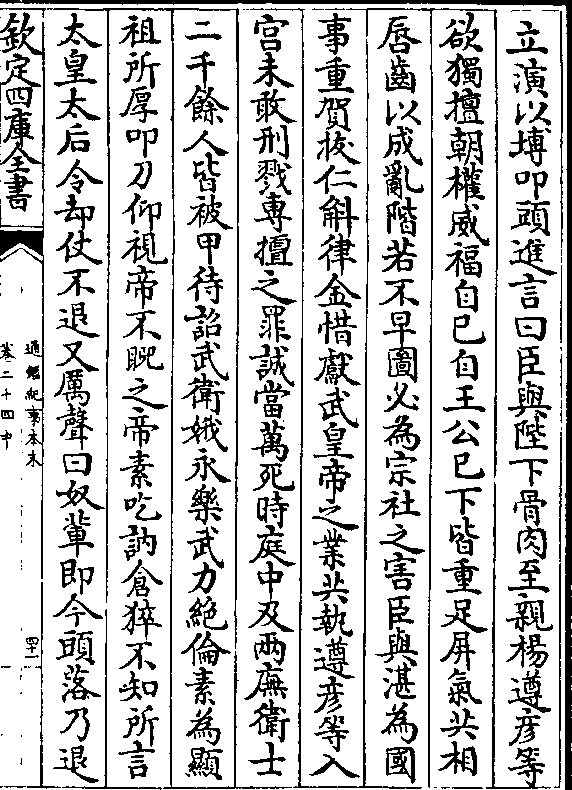 立演以塼叩頭進言曰臣與陛下骨肉至親楊遵彦等
欲獨擅朝權威福自已自王公已下皆重足屏氣共相
唇齒以成亂階若不早圖必為宗社之害臣與湛為國
事重賀㧞仁斛律金惜獻武皇帝之業共執遵彦等入
宫未敢刑戮專擅之罪誠當萬死時庭中及兩廡衛士
二千餘人皆被甲待詔武衛娥永樂武力絶倫素為顯
祖所厚叩刀仰視帝不睨之帝素吃訥倉猝不知所言
太皇太后令却仗不退又厲聲曰奴輩即今頭落乃退
欽定四庫全書
通鑑紀事本末
卷二十四中
四十一